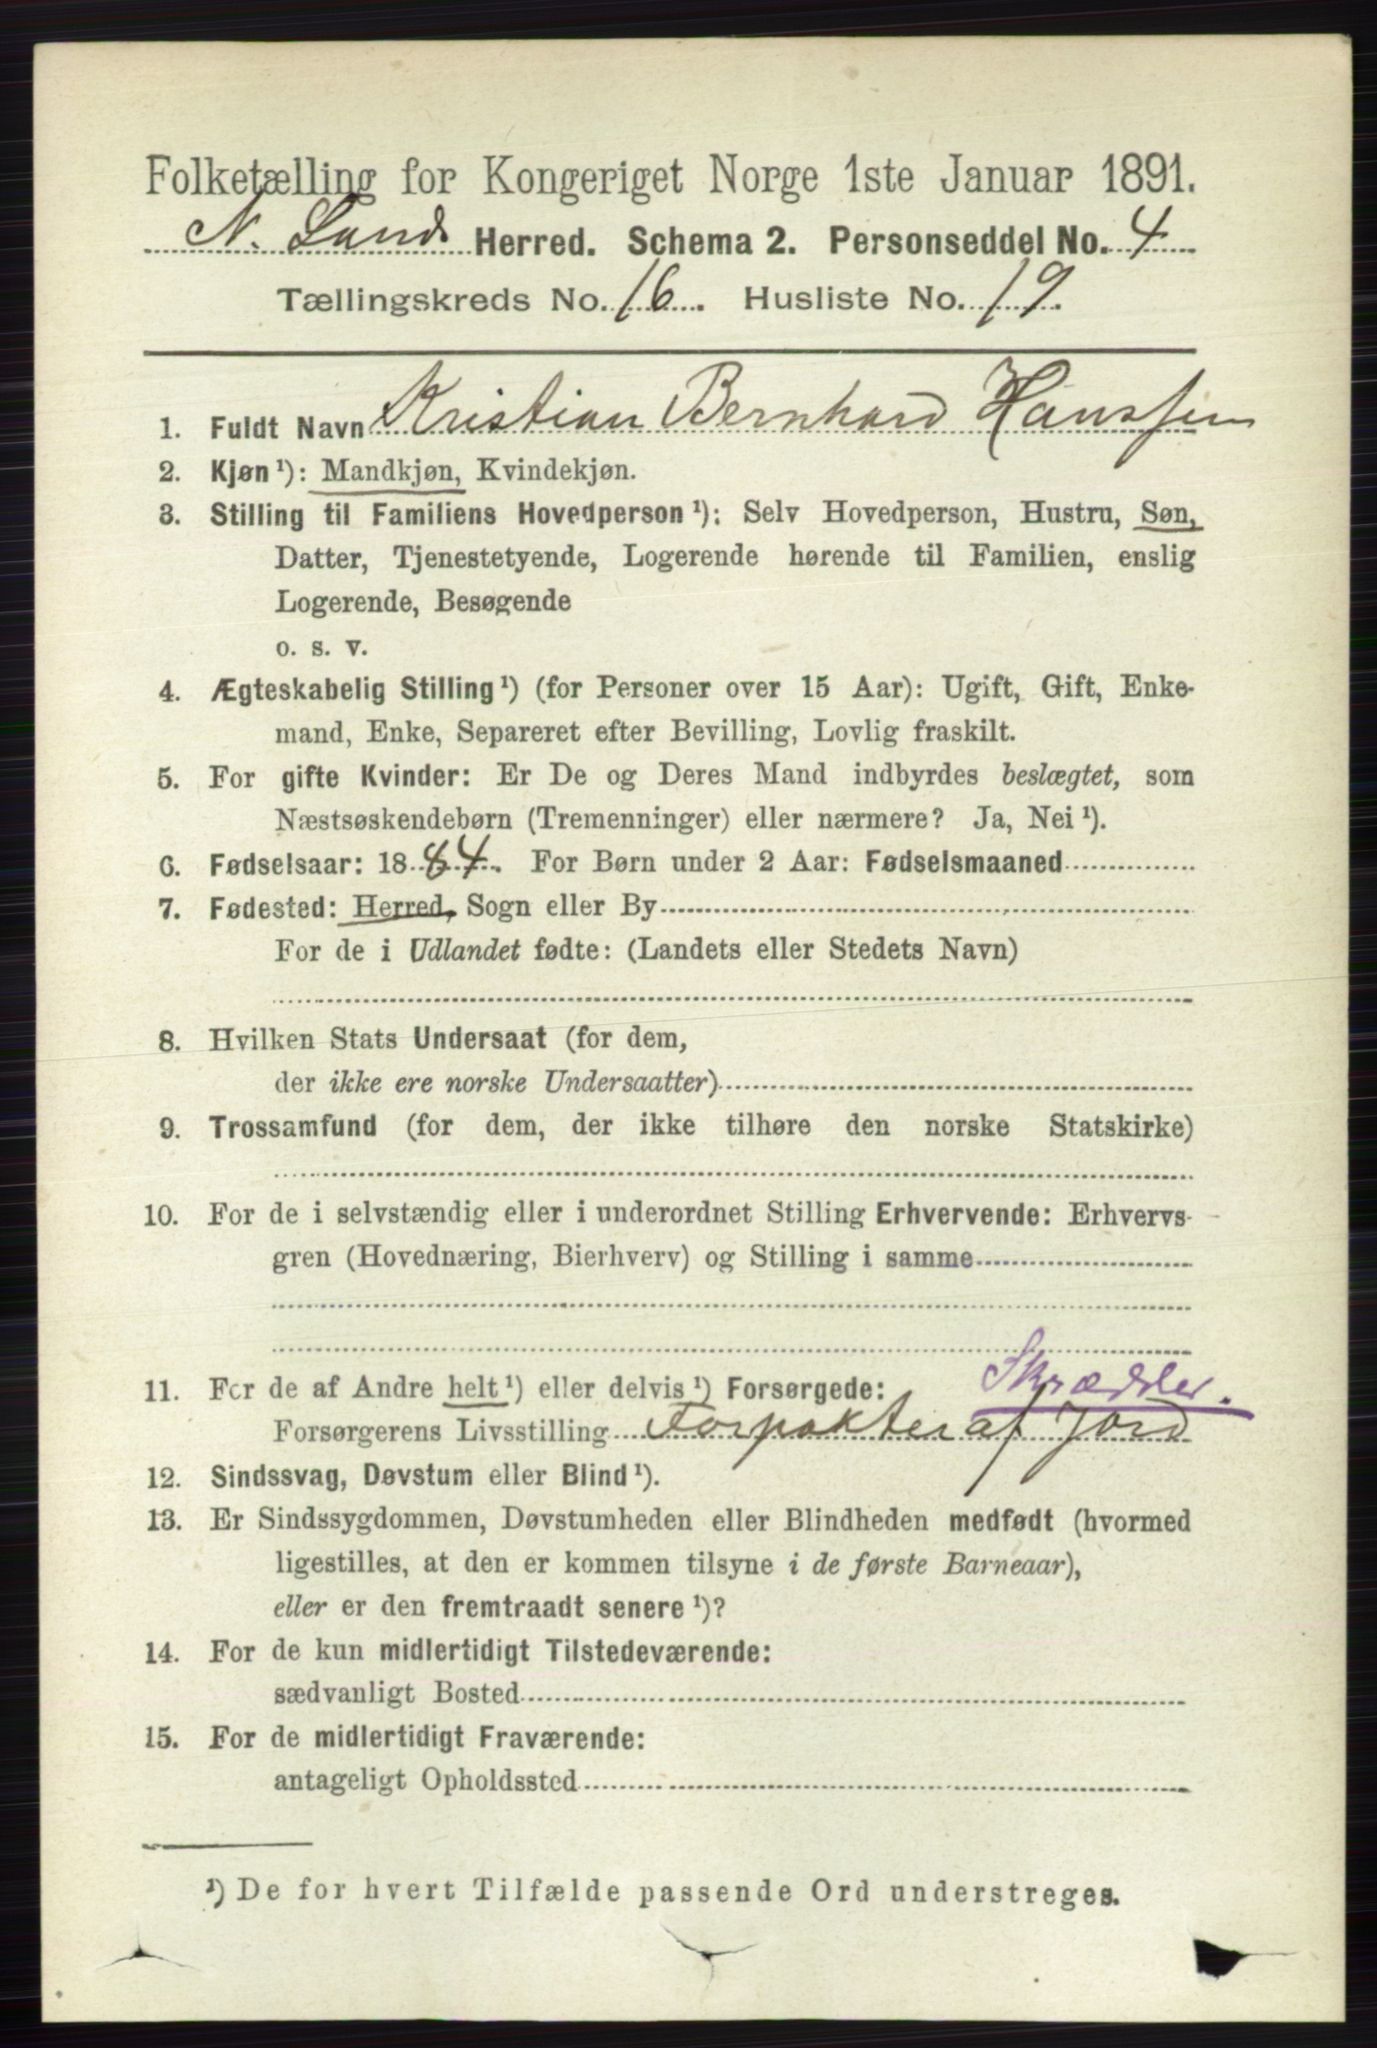 Folketælling for Kongeriget Norge 1ste Januar 1891.
N. Lands Herred. Schema 2. Personseddel No. 4
Tællingskreds No. 16. Husliste No. 19.
1. Fuldt Navn Kristian Bernhard Hanssen
2. Kjøn¹): Mandkjøn, Kvindekjøn.
3. Stilling til Familiens Hovedperson¹): Selv Hovedperson, Hustru, Søn,
Datter, Tjenestetyende, Logerende hørende til Familien, enslig
Logerende, Besøgende
o. s. v.
4. Ægteskabelig Stilling¹) (for Personer over 15 Aar): Ugift, Gift, Enke-
mand, Enke, Separeret efter Bevilling, Lovlig fraskilt.
5. For gifte Kvinder: Er De og Deres Mand indbyrdes beslægtet, som
Næstsøskendebørn (Tremenninger) eller nærmere? Ja, Nei¹).
6. Fødselsaar: 1884. For Børn under 2 Aar: Fødselsmaaned
7. Fødested: Herred, Sogn eller By
For de i Udlandet fødte: (Landets eller Stedets Navn)
8. Hvilken Stats Undersaat (for dem,
der ikke ere norske Undersaatter)
9. Trossamfund (for dem, der ikke tilhøre den norske Statskirke)
10. For de i selvstændig eller i underordnet Stilling Erhvervende: Erhvervs-
gren (Hovednæring, Bierhverv) og Stilling i samme
11. For de af Andre helt¹) eller delvis¹) Forsørgede: Skrædder.
Forsørgerens Livsstilling Forpakter af Jord
12. Sindssvag, Døvstum eller Blind¹).
13. Er Sindssygdommen, Døvstumheden eller Blindheden medfødt (hvormed
ligestilles, at den er kommen tilsyne i de første Barneaar),
eller er den fremtraadt senere¹)?
14. For de kun midlertidigt Tilstedeværende:
sædvanligt Bosted
15. For de midlertidigt Fraværende:
antageligt Opholdssted
¹) De for hvert Tilfælde passende Ord understreges.